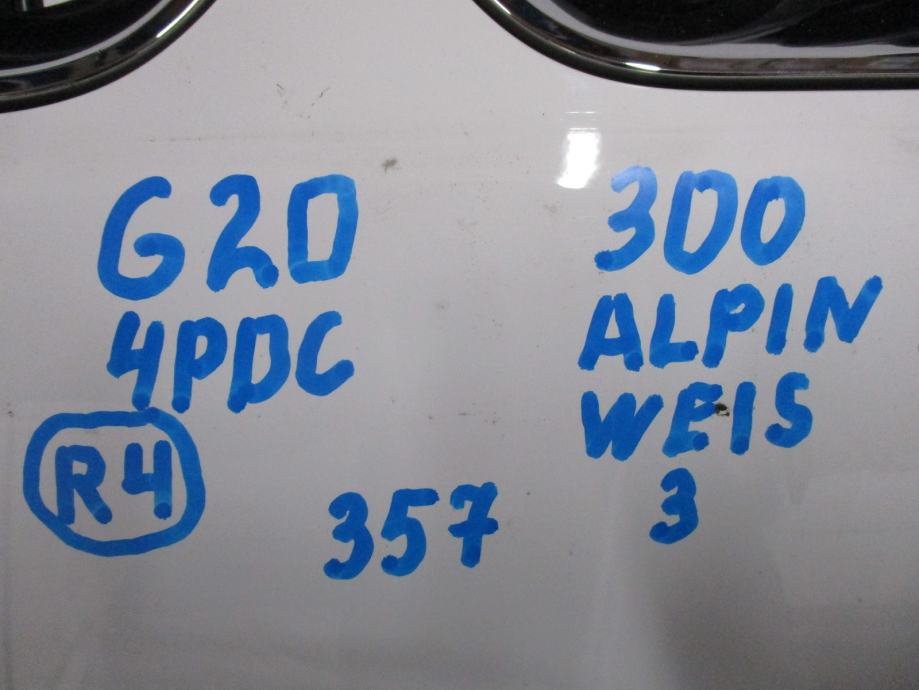 G20
4PDC
R4
357
300
ALPIN
WEIS
3